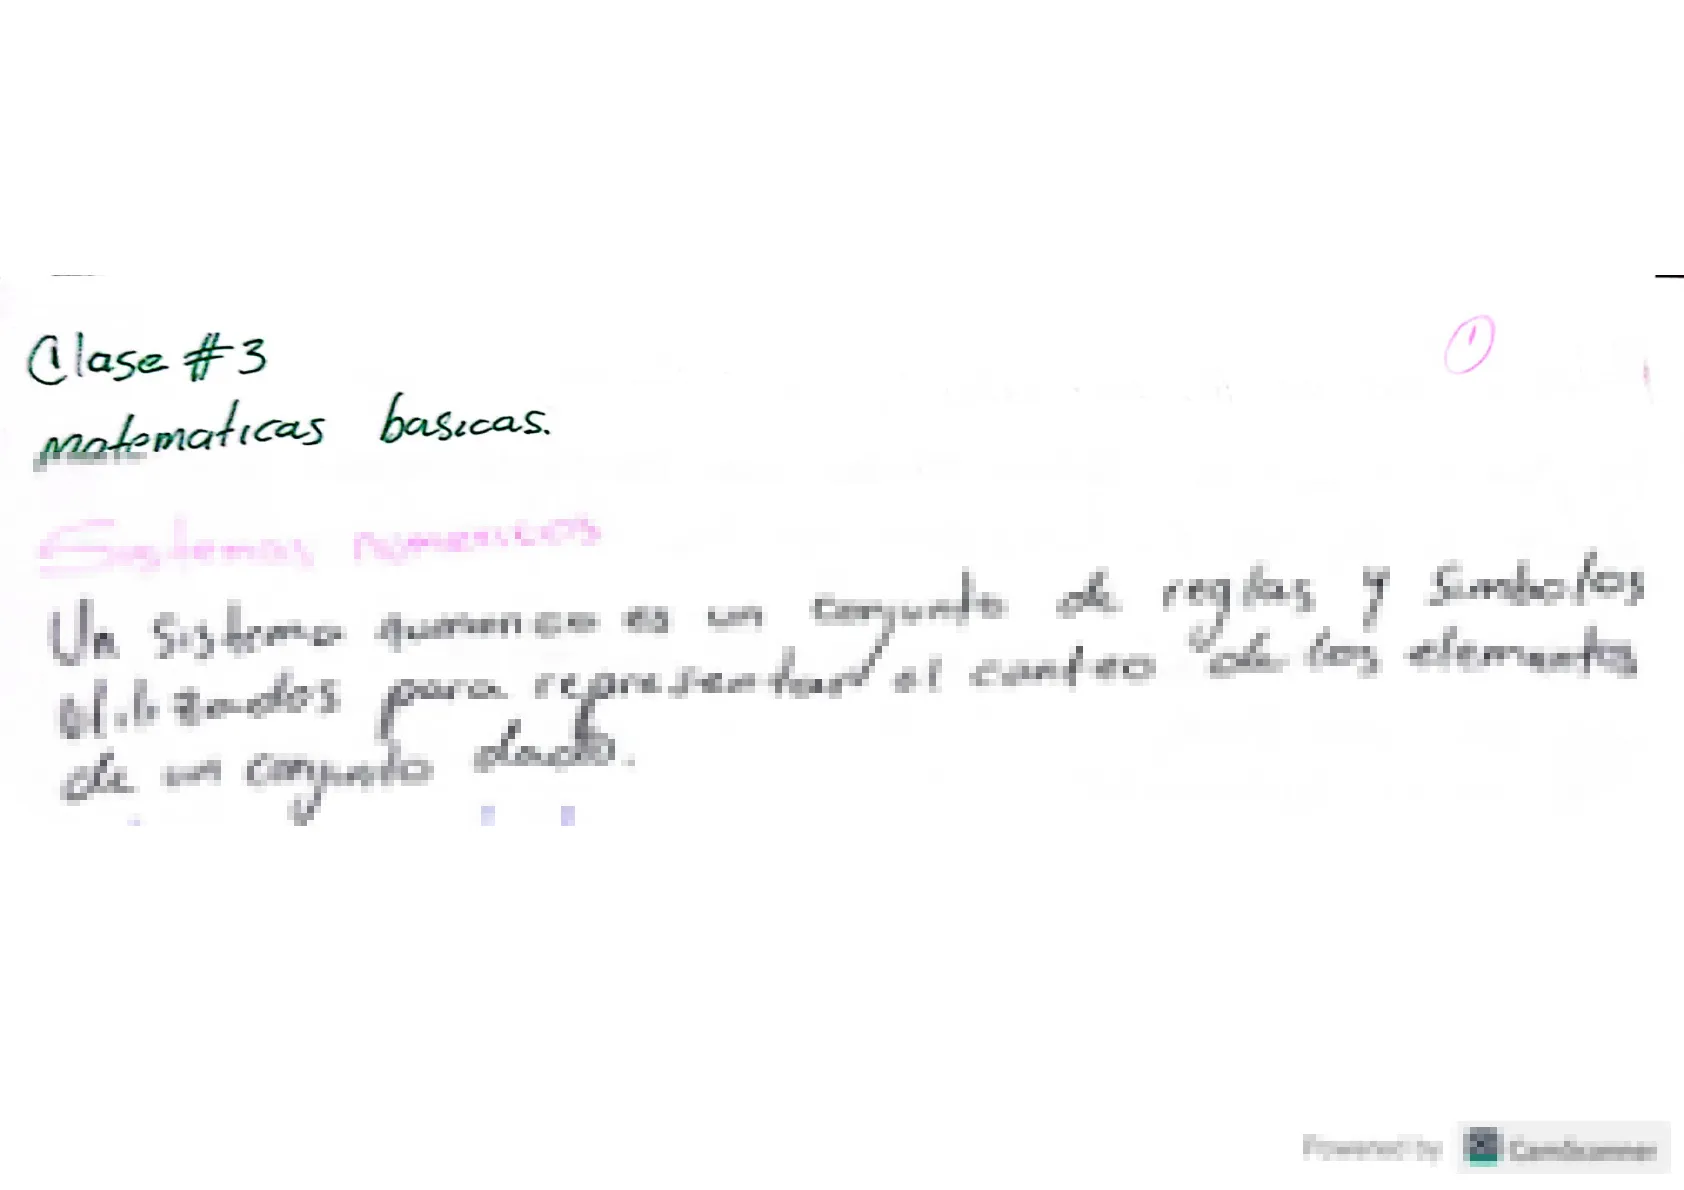 Clase #3
①
Matematicas basicas.
Sistemas numericos
Un sistema numerico es un conjunto de reglas y simbolos
utilizados para representar el conteo de los elementos
de un conjunto dado.
Powered by CamScanner